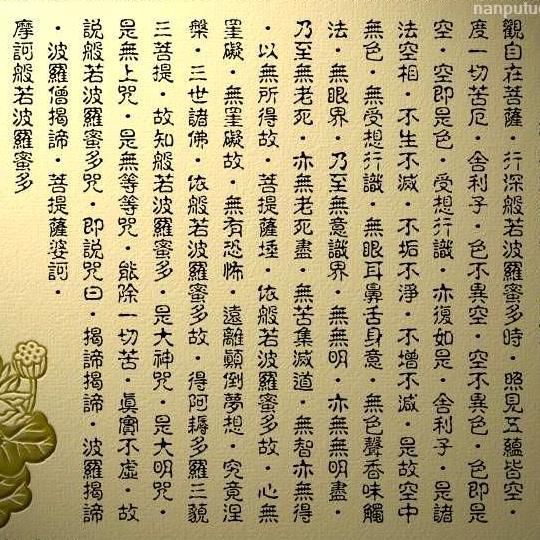 觀自在菩薩·行深般若波羅蜜多時·照見五蘊皆空·
度一切苦厄·舍利子·色不異空·空不異色·色即是
空·空即是色·受想行識·亦復如是·舍利子·是諸
法空相·不生不滅·不垢不淨·不增不減·是故空中
無色·無受想行識·無眼耳鼻舌身意·無色聲香味觸
法·無眼界·乃至無意識界·無無明·亦無無明盡·
乃至無老死·亦無老死盡·無苦集滅道·無智亦無得
·以無所得故·菩提薩埵·依般若波羅蜜多故·心無
罣礙·無罣礙故·無有恐怖·遠離顛倒夢想·究竟涅
槃·三世諸佛·依般若波羅蜜多故·得阿耨多羅三藐
三菩提·故知般若波羅蜜多·是大神咒·是大明咒·
是無上咒·是無等等咒·能除一切苦·眞實不虛·故
說般若波羅蜜多咒·即說咒曰·揭諦揭諦·波羅揭諦
·波羅僧揭諦·菩提薩婆訶·
摩訶般若波羅蜜多